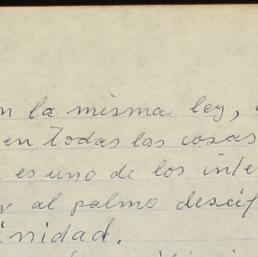 n la misma ley,
en todas las cosas
es uno de los inte
y al palmo descif
inidad.